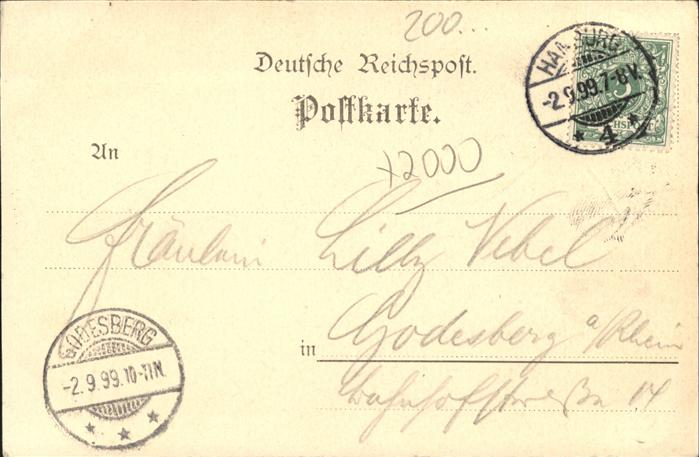 200...
Deutsche Reichspost.
Postkarte.
HAMBURG
-2.9.99.7-8V.
* 4 *
5
An
x2000
Fräulein Lilly Nebel
in Godesberg a/Rhein
Bahnhofstrasse 14
GODESBERG
-2.9.99.10-11N.
* * *